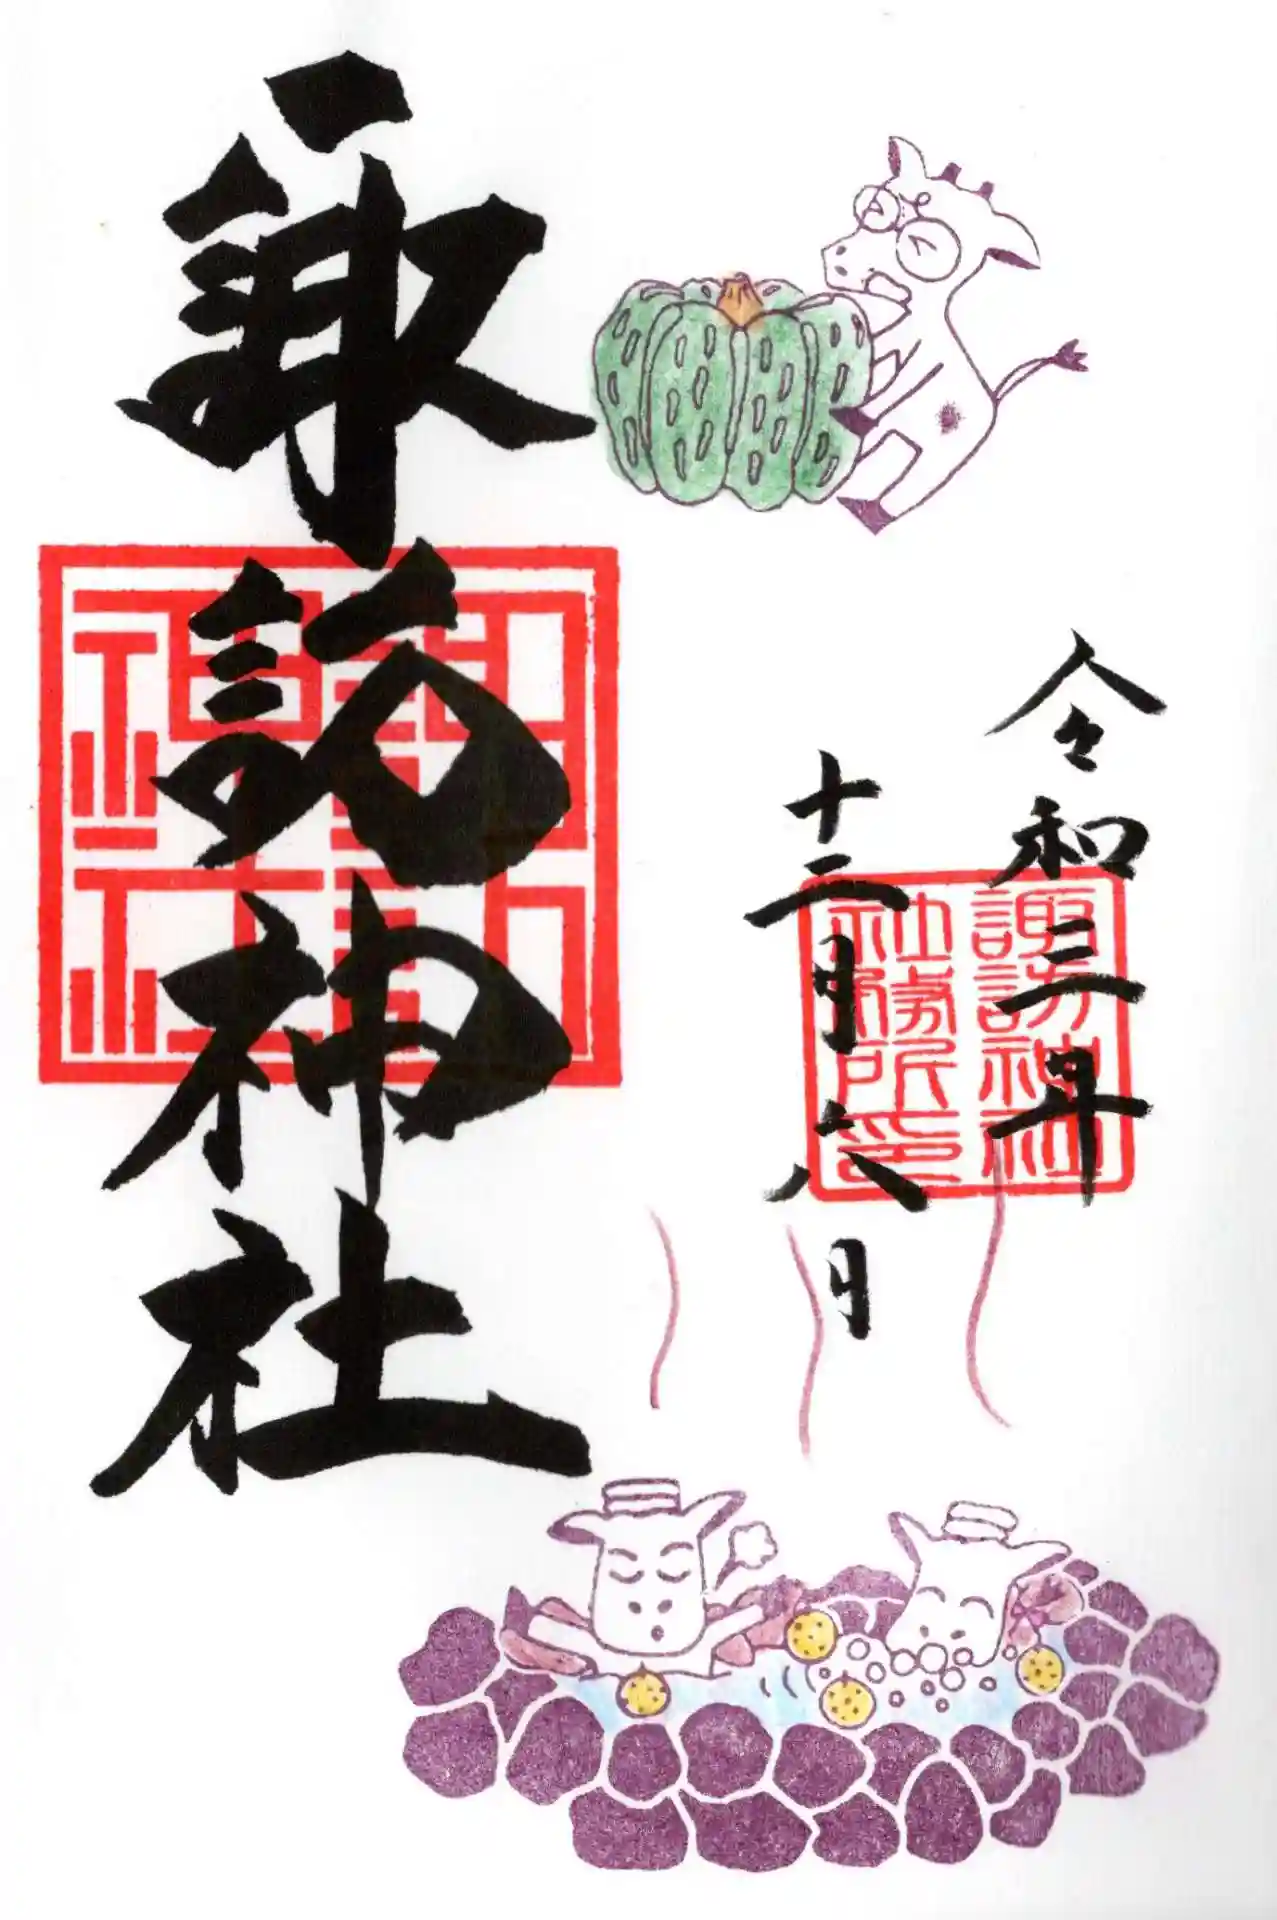 令和三年
十二月六日
諏訪神社
社務所印
諏訪神社
諏訪
神社